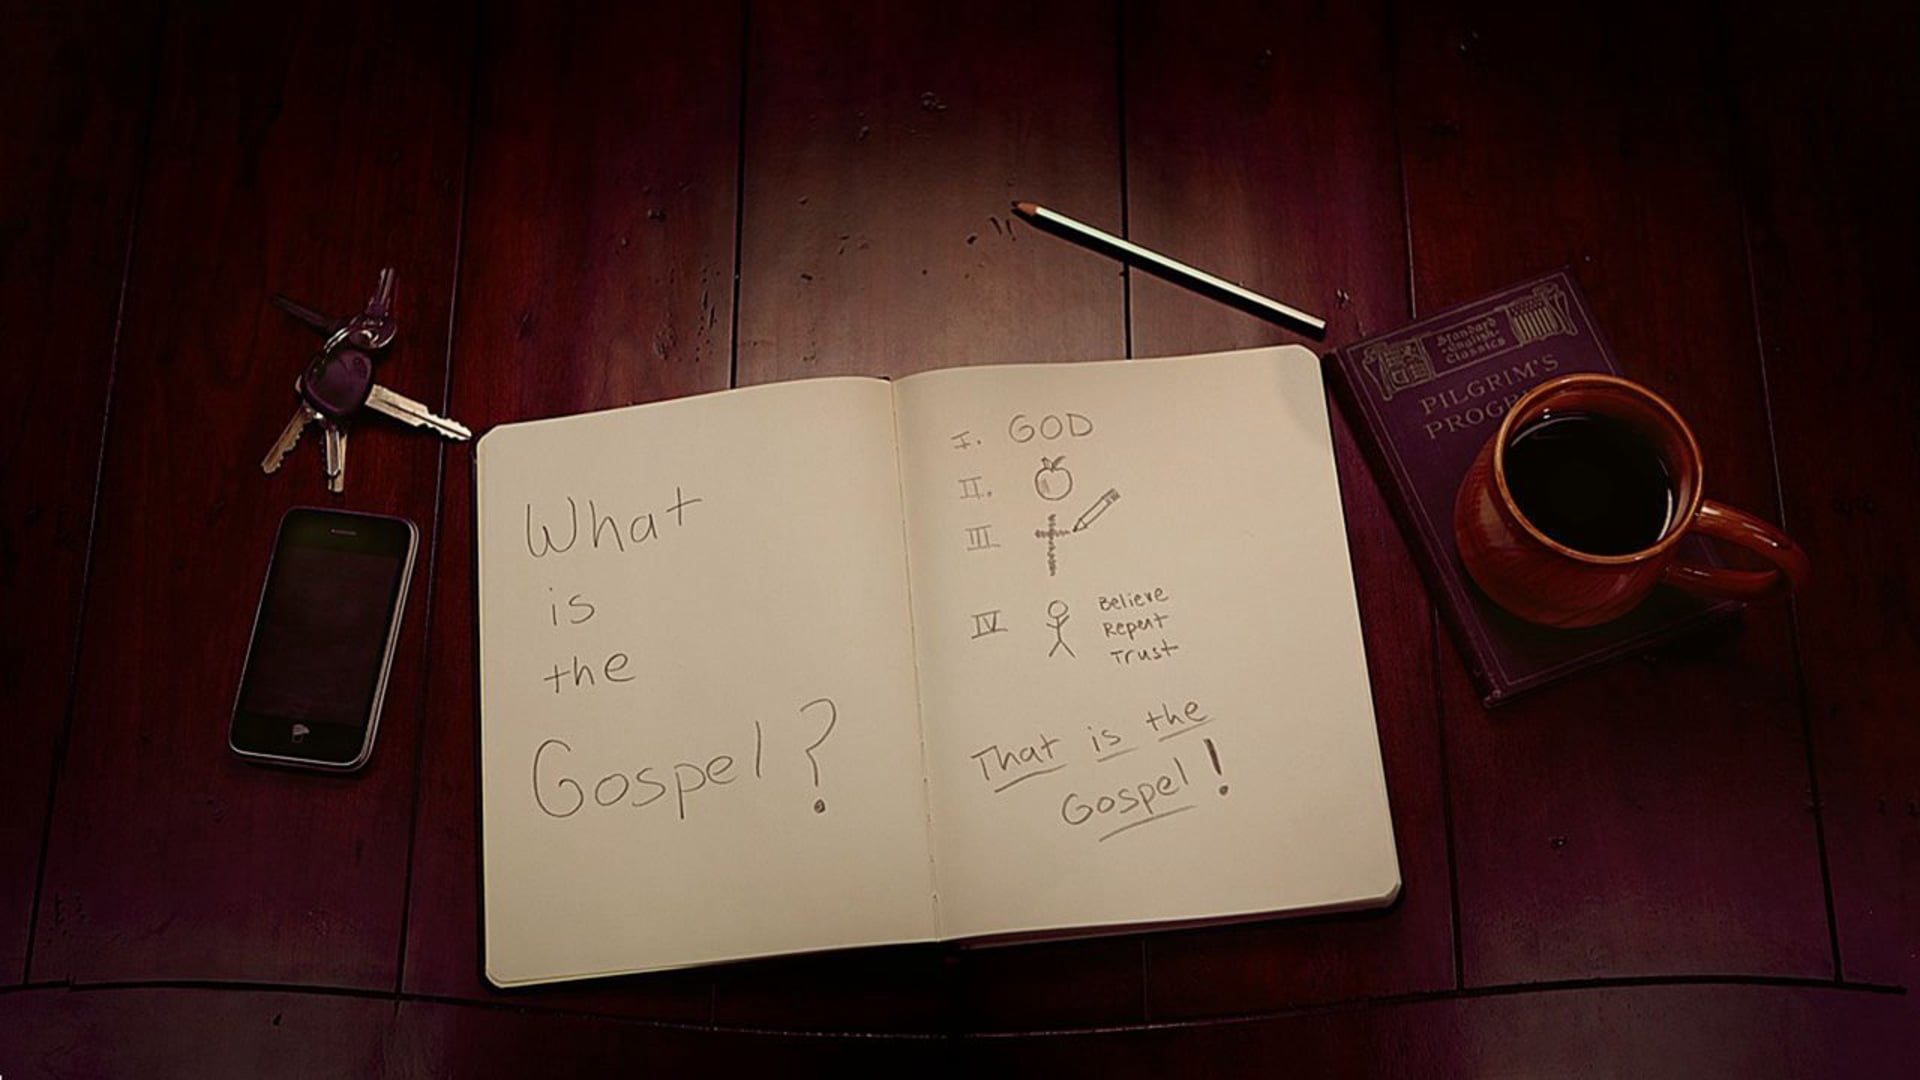 What
is
the
Gospel?
I. GOD
II.
III
IV
Believe
Repent
Trust
That is the
Gospel!
Standard
English
Classics
PILGRIM'S